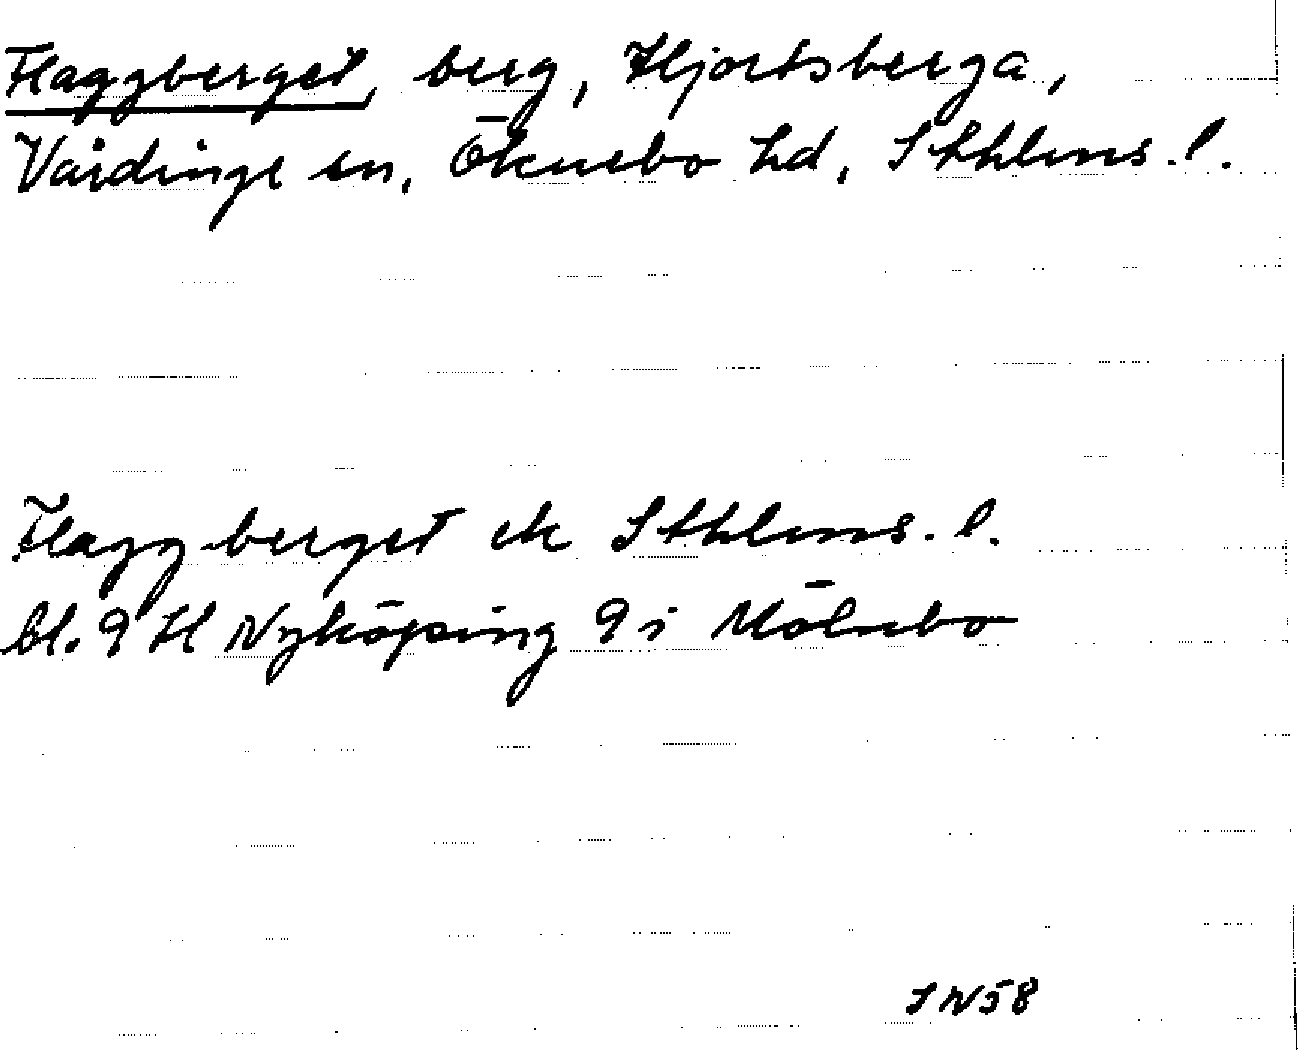 Flaggberget, berg, Hjortsberga,
Vårdinge sn, Öknebo hd, Sthlms. l.
Flaggberget ek Sthlms. l.
bl. 9 H Nyköping 9 i Mölnbo
S N58